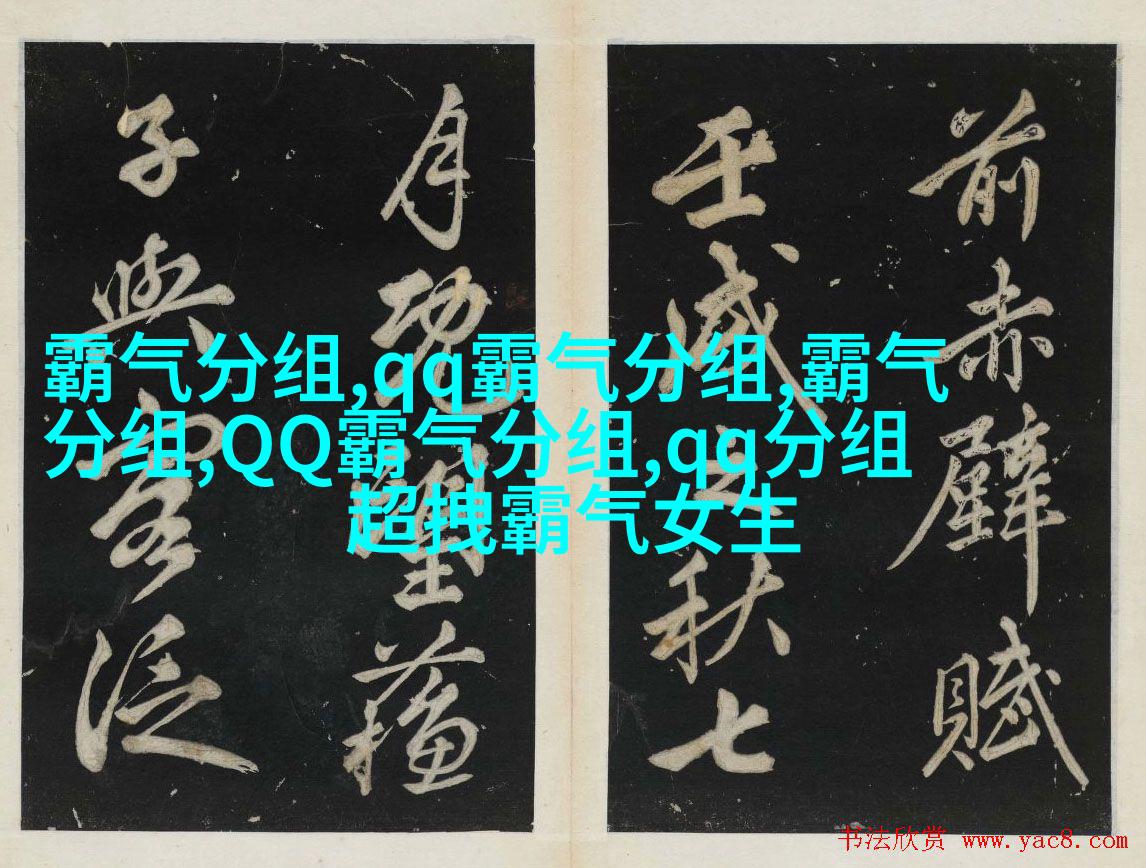 前赤壁賦
壬戌之秋七
月既望蘓
子與客泛
霸气分组,qq霸气分组,霸气
分组,QQ霸气分组,qq分组
超拽霸气女生
书法欣赏 www.yac8.com